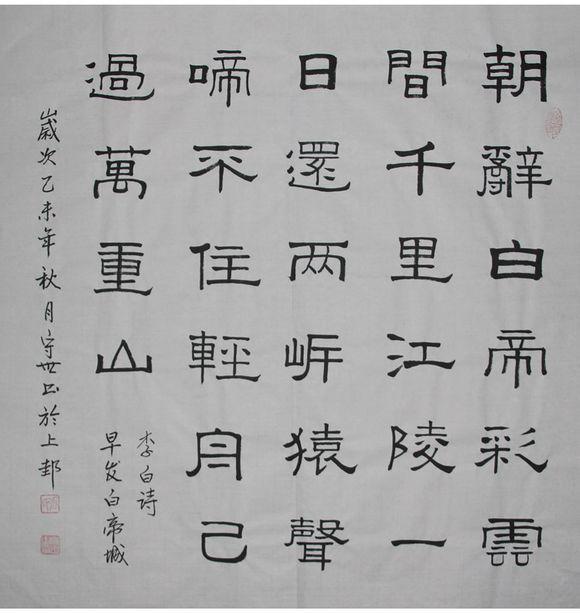 朝辭白帝彩雲
間千里江陵一
日還两岸猿聲
啼不住輕舟已
過萬重山
李白诗
早发白帝城
歲次乙未年秋月守世书於上邽